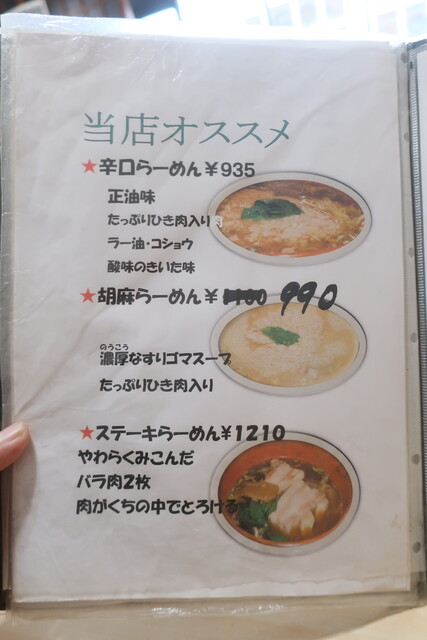 当店オススメ
★辛口らーめん¥935
正油味
たっぷりひき肉入り
ラー油・コショウ
酸味のきいた味
★胡麻らーめん¥ 990
のうこう
濃厚なすりゴマスープ
たっぷりひき肉入り
★ステーキらーめん¥1210
やわらくみこんだ
バラ肉2枚
肉がくちの中でとろける